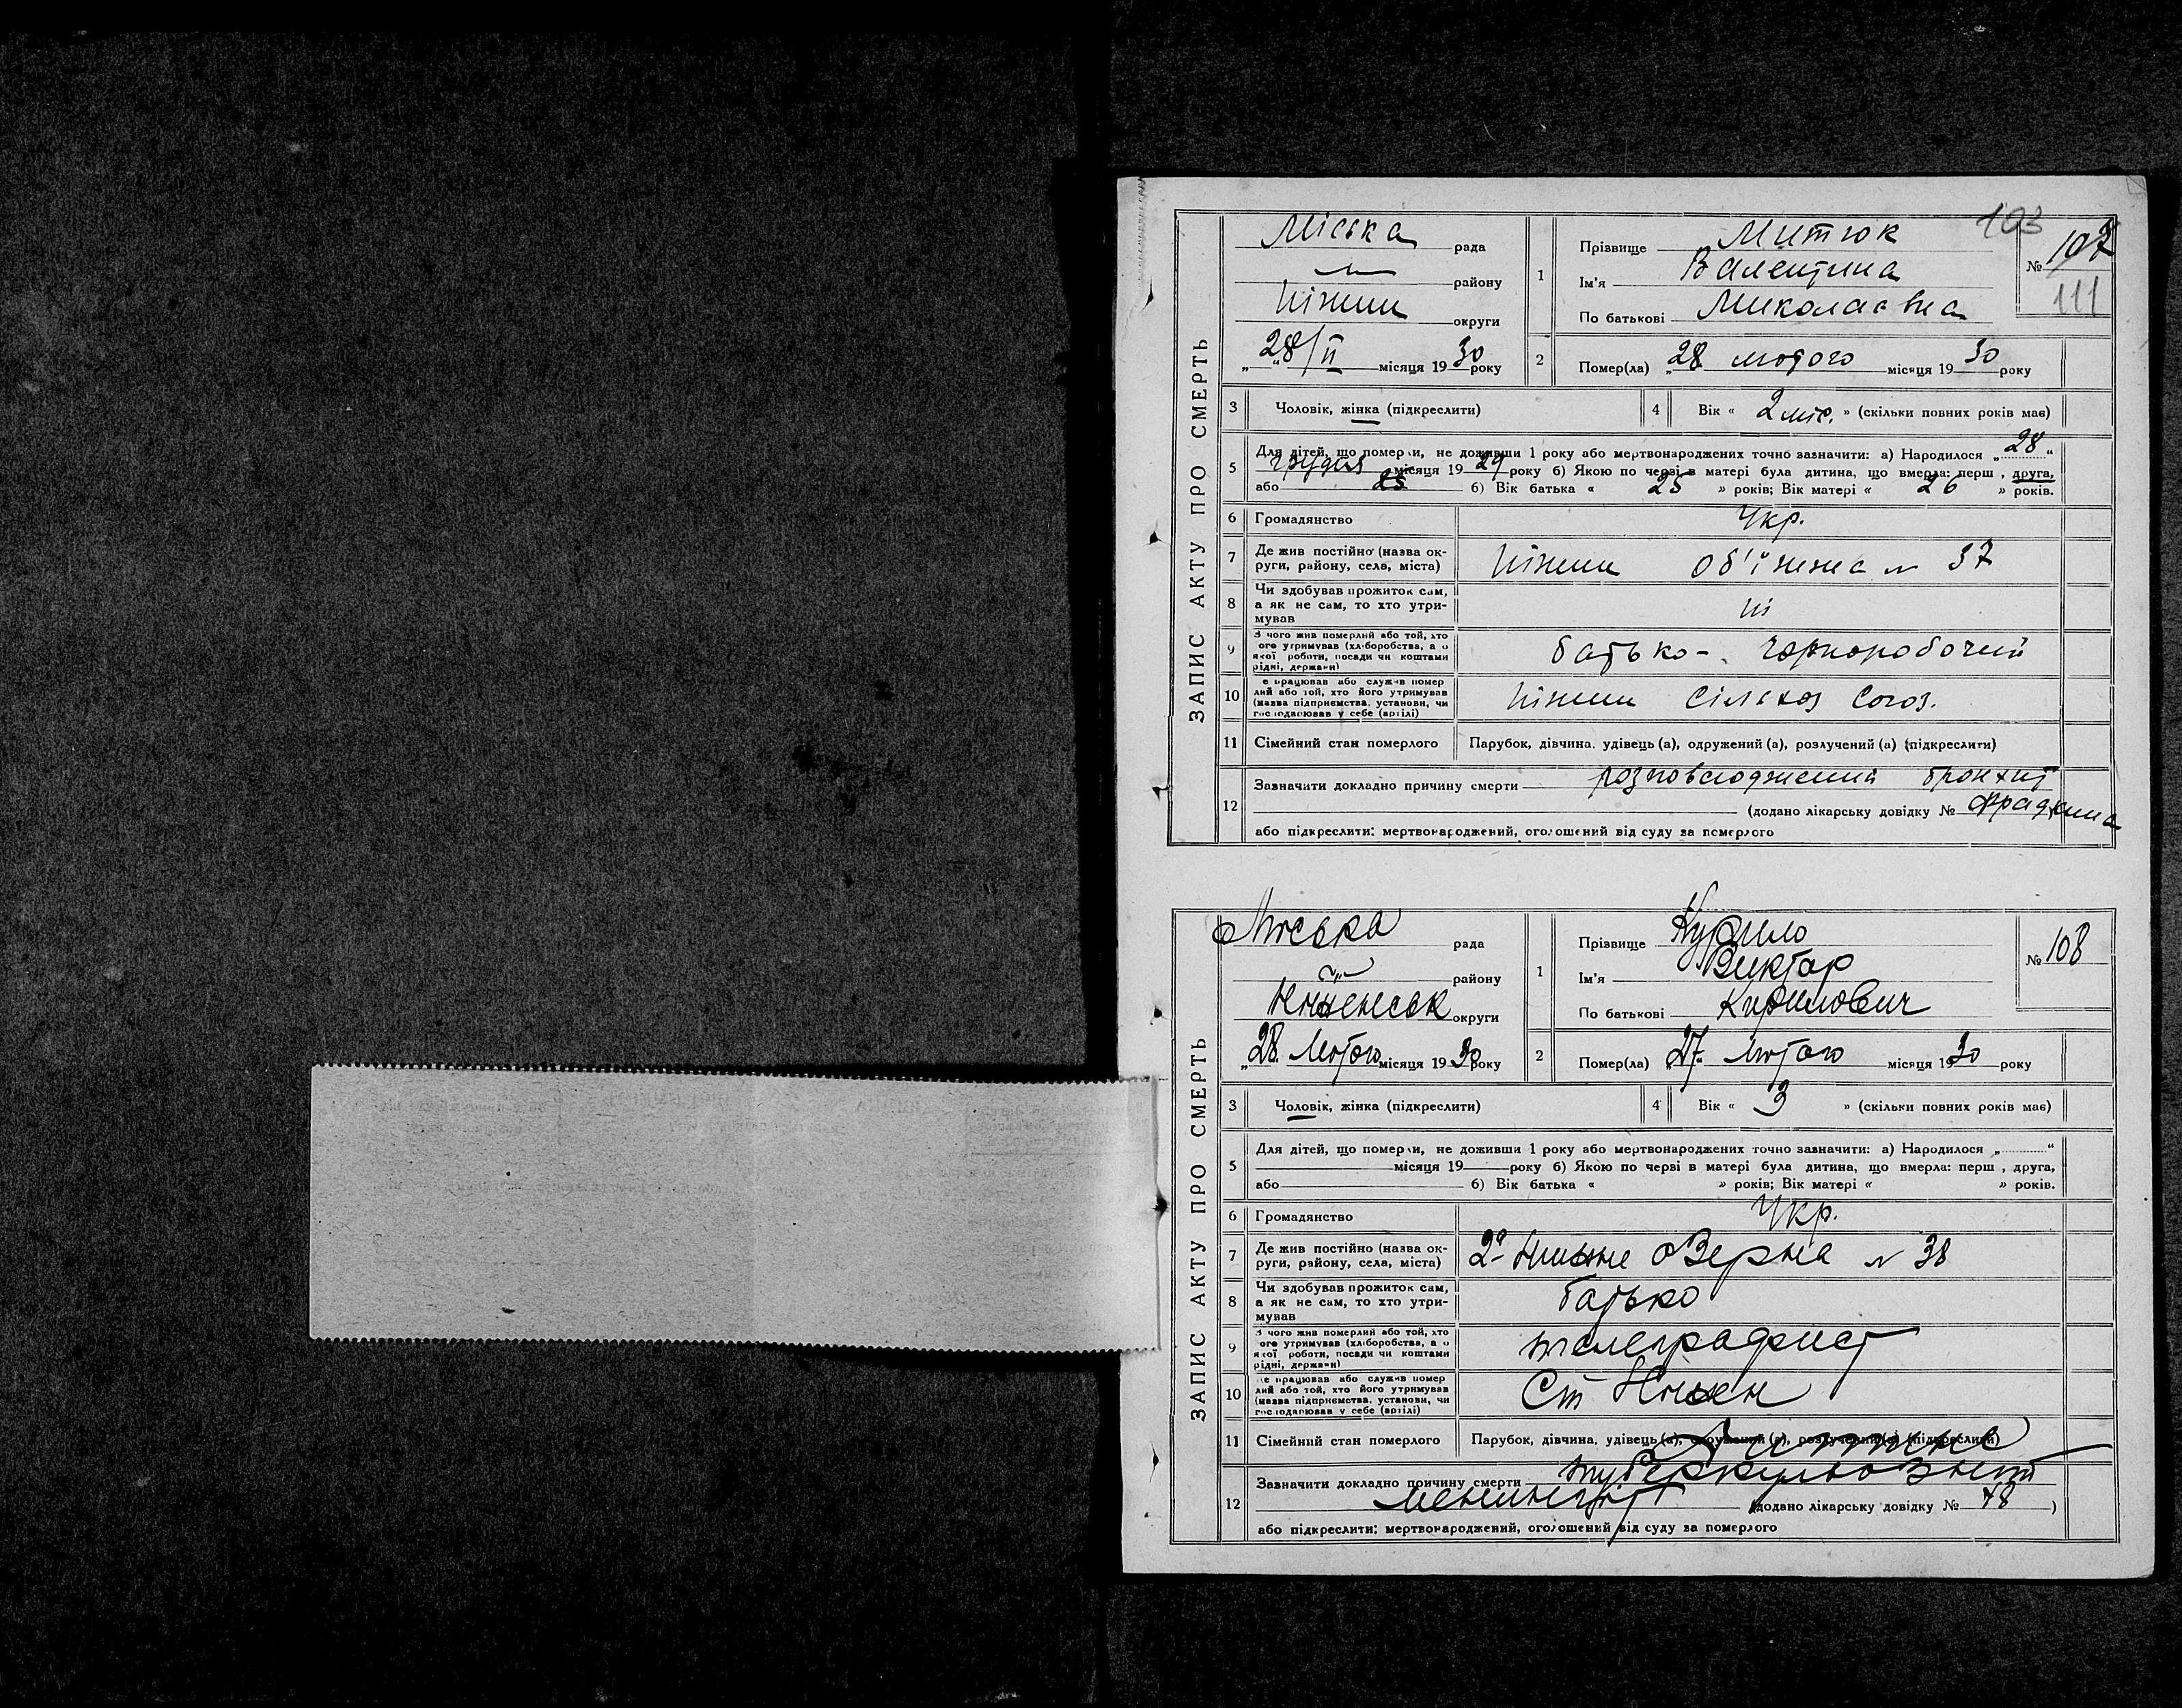 103
ЗАПИС АКТУ ПРО СМЕРТЬ
Міська рада
району
Ніжин округи
28/II місяця 1930 року
1
Прізвище Митюк
Ім'я Валентина
По батькові Миколаєвна
№ 107
111
2
Помер(ла) „28 лютого місяця 1930 року
3 Чоловік, жінка (підкреслити)
4 Вік « 2 міс. » (скільки повних років має)
5 Для дітей, що померли, не доживши 1 року або мертвонароджених точно зазначити: а) Народилося „28“
грудня місяця 1929 року б) Якою по черзі в матері була дитина, що вмерла: перш , друга,
або 6) Вік батька « 25 » років; Вік матері « 26 » років.
6 Громадянство Укр.
7 Де жив постійно (назва ок-
руги, району, села, міста)
Ніжин Об'їжжа № 37
8 Чи здобував прожиток сам,
а як не сам, то хто утри-
мував
Ні
9 З чого жив померлий або той, хто
ого утримував (хліборобства, а о
якої роботи, посади чи коштами
рідні, держави)
батько - Чорноробочий
10 е працював або служив помер
лий або той, хто його утримував
(назва підприємства, установи, чи
господарював у себе (артілі)
Ніжин Сільхоз Союз.
11 Сімейний стан померлого Парубок, дівчина, удівець (а), одружений (а), розлучений (а) (підкреслити)
12 Зазначити докладно причину смерти розповсюджений бронхит
(додано лікарську довідку № Фрадкина
або підкреслити: мертвонароджений, оголошений від суду за померлого
ЗАПИС АКТУ ПРО СМЕРТЬ
Міська рада
району
Ніженськ округи
„28 Лютого місяця 1930 року
1
Прізвище Курило
Ім'я Виктор
По батькові Кирилович
№ 108
2
Помер(ла) „27 Лютого місяця 1930 року
3 Чоловік, жінка (підкреслити)
4 Вік « 3 » (скільки повних років має)
5 Для дітей, що померли, не доживши 1 року або мертвонароджених точно зазначити: а) Народилося „ “
місяця 19 року б) Якою по черзі в матері була дитина, що вмерла: перш , друга,
або 6) Вік батька « » років; Вік матері « » років.
6 Громадянство Укр.
7 Де жив постійно (назва ок-
руги, району, села, міста)
Озерна № 38
8 Чи здобував прожиток сам,
а як не сам, то хто утри-
мував
батько
9 З чого жив померлий або той, хто
ого утримував (хліборобства, а о
якої роботи, посади чи коштами
рідні, держави)
телеграфист
10 е працював або служив помер
лий або той, хто його утримував
(назва підприємства, установи, чи
господарював у себе (артілі)
Ст Ніжен
11 Сімейний стан померлого Парубок, дівчина, удівець (а), одружений (а), розлучений (а) (підкреслити)
12 Зазначити докладно причину смерти туберкульозний
менингит (додано лікарську довідку № 48 )
або підкреслити: мертвонароджений, оголошений від суду за померлого